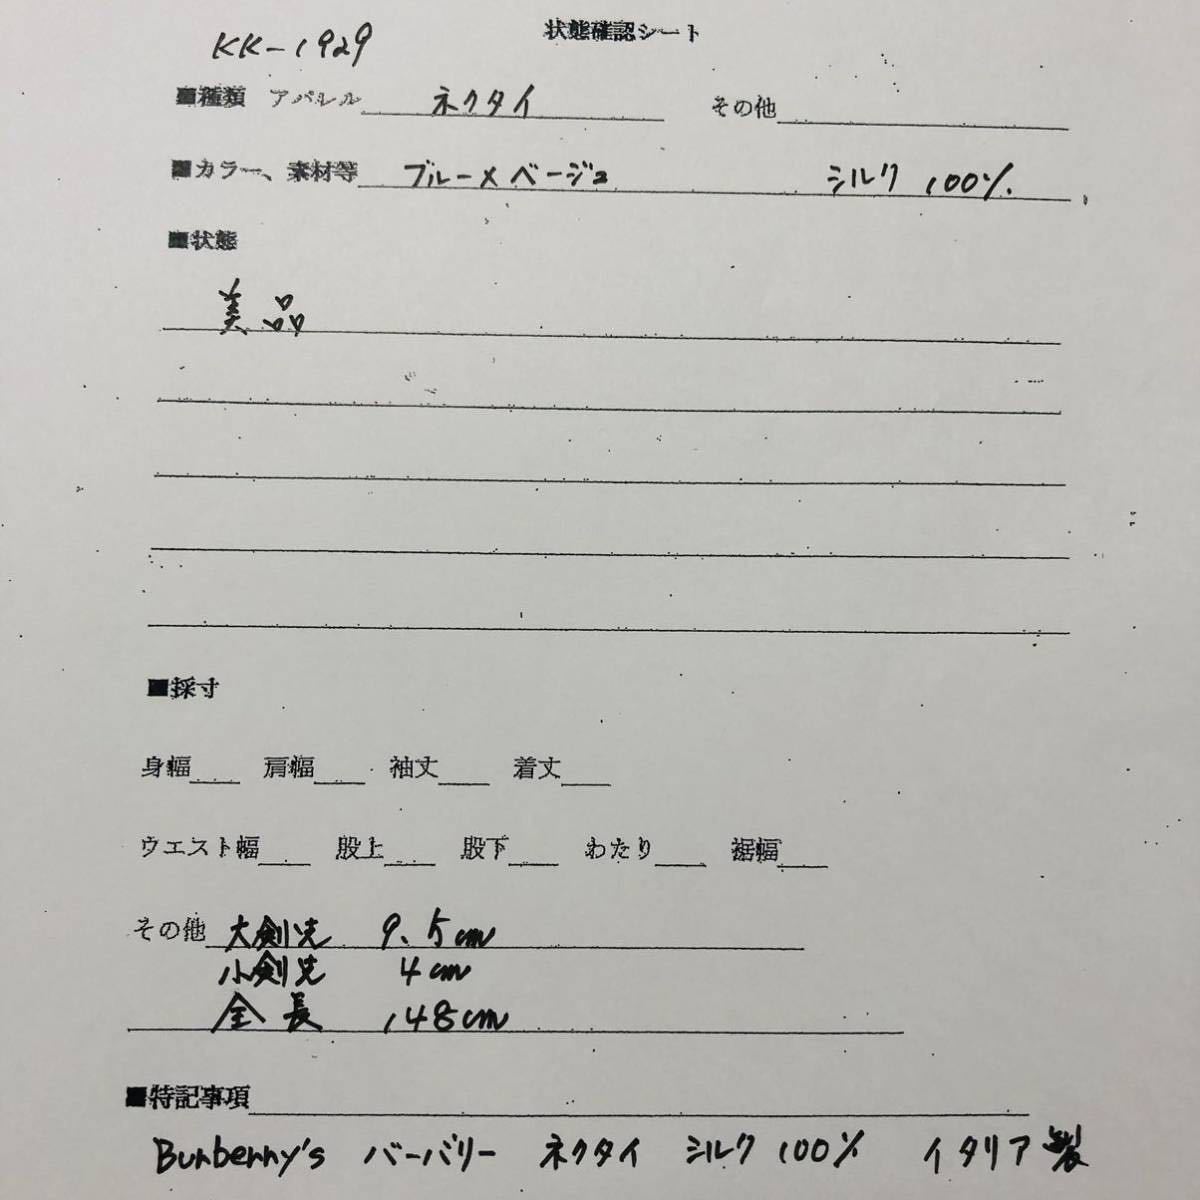 状態確認シート
KK-1929
■種類 アパレル ネクタイ その他
■カラー、素材等 ブルー×ベージュ シルク 100%
■状態
美品
■採寸
身幅 肩幅 袖丈 着丈
ウエスト幅 股上 股下 わたり 裾幅
その他 大剣先 9.5cm
小剣先 4cm
全長 148cm
■特記事項
Burberry's バーバリー ネクタイ シルク 100% イタリア製